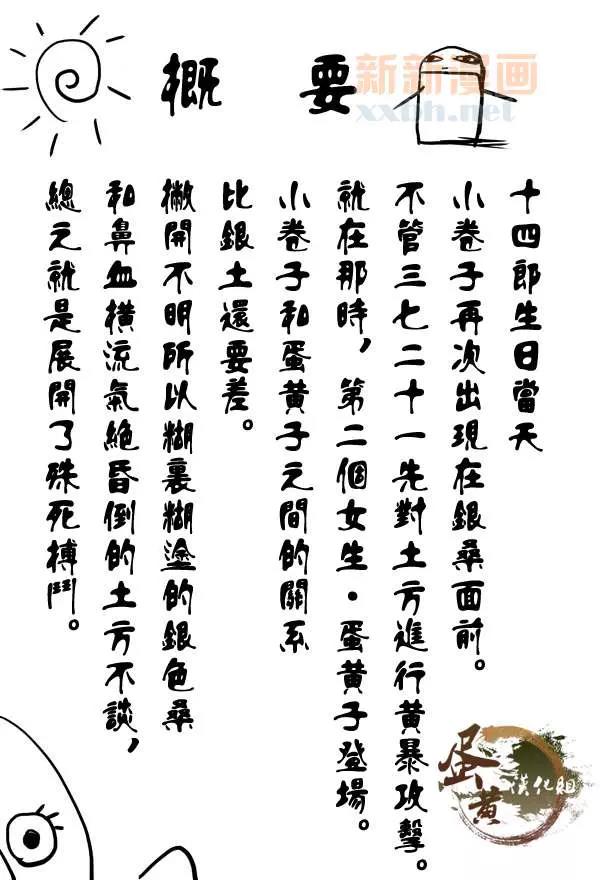 概要
新新漫画
xxbh.net
十四郎生日當天
小卷子再次出現在銀桑面前。
不管三七二十一先對土方進行黄暴攻擊。
就在那時，第二個女生・蛋黄子登場。
小卷子和蛋黄子之間的關系
比銀土還要差。
撇開不明所以糊裏糊塗的銀色桑
和鼻血橫流氣絶昏倒的土方不談，
總之就是展開了殊死搏鬥。
蛋黄
漢化組